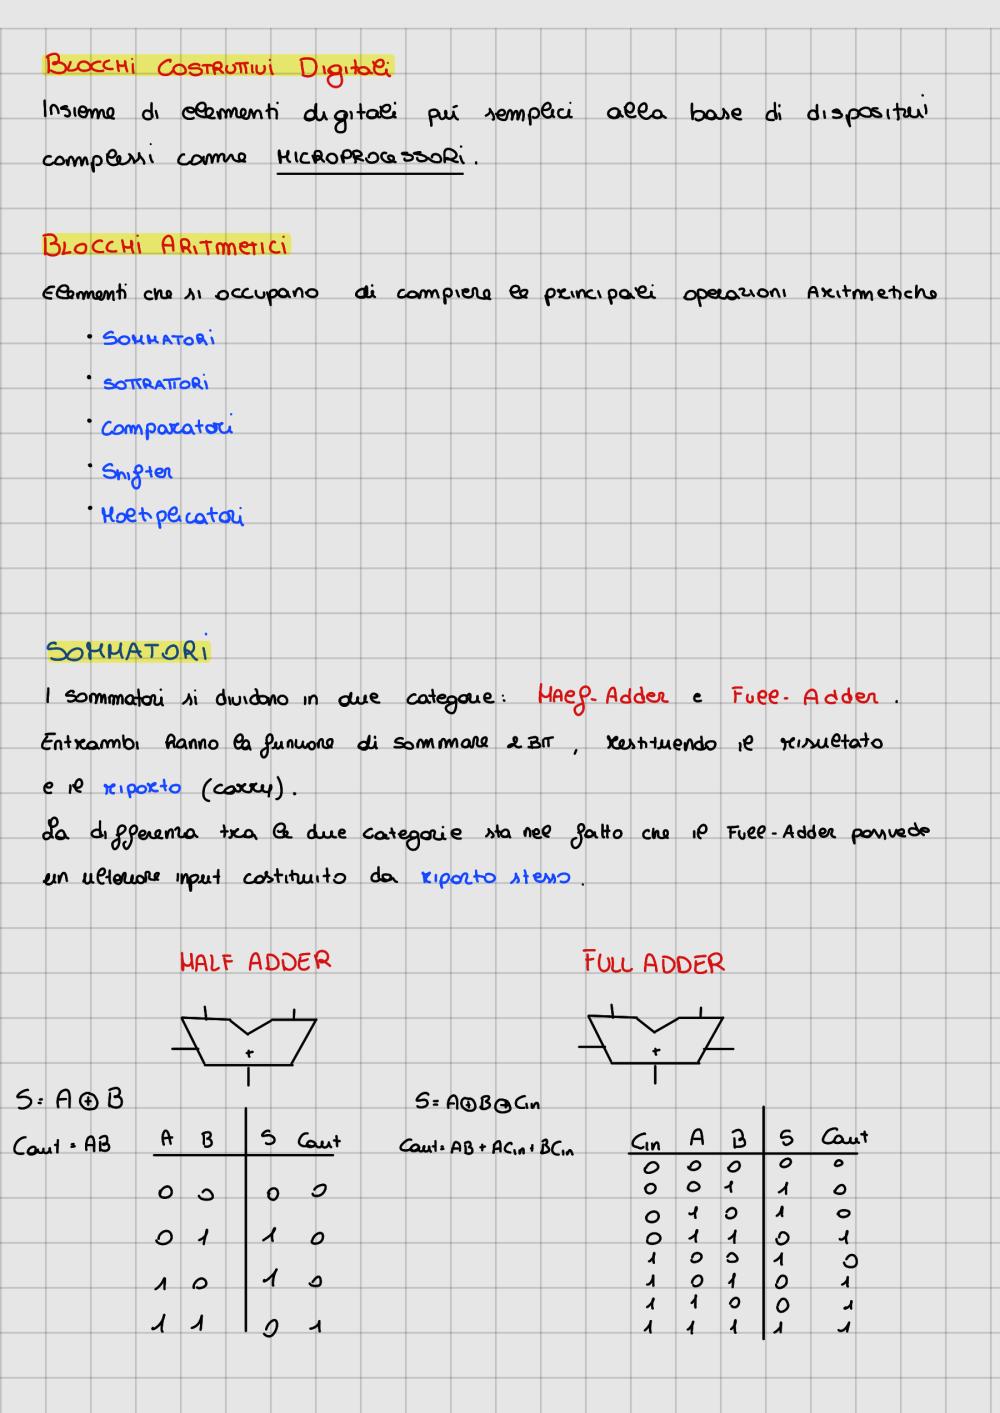 BLOCCHI COSTRUTTIVI Digitali
Insieme di elementi digitali più semplici alla base di dispositivi
complessi come MICROPROCESSORI.
BLOCCHI ARITMETICI
Elementi che si occupano di compiere le principali operazioni Aritmetiche
• SOMMATORI
• SOTTRATTORI
• Comparatori
• Shifter
• Moltiplicatori
SOMMATORI
I sommatori si dividono in due categorie: HAlf-Adder e Full-Adder.
Entrambi hanno la funzione di sommare 2 BIT, restituendo il risultato
e il riporto (carry).
La differenza tra le due categorie sta nel fatto che il Full-Adder possiede
un ulteriore input costituito da riporto stesso.
HALF ADDER FULL ADDER
+ +
S = A ⊕ B S = A⊕B⊕Cin
Cout = AB Cout = AB + ACin + BCin
A B S Cout
0 0 0 0
0 1 1 0
1 0 1 0
1 1 0 1
Cin A B S Cout
0 0 0 0 0
0 0 1 1 0
0 1 0 1 0
0 1 1 0 1
1 0 0 1 0
1 0 1 0 1
1 1 0 0 1
1 1 1 1 1